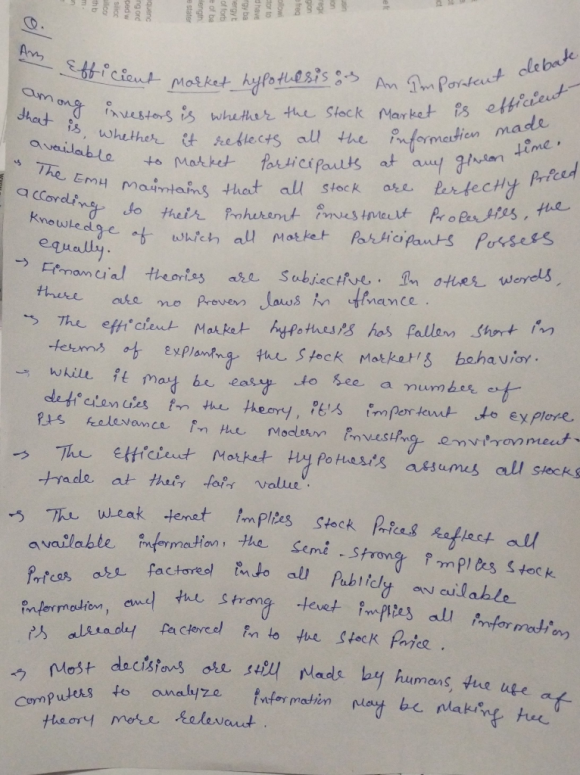 Q.
Ans Efficient Market hypothesis :-> An Important debate
among investors is whether the stock Market is efficient-
that is, whether it reflects all the information made
available to Market Participants at any given time.
-> The EMH Maintains that all stock are Perfectly Priced
according to their inherent investment Properties, the
knowledge of which all Market Participants Possess
equally.
-> Financial theories are Subjective. In other words,
there are no Proven laws in finance.
-> The efficient Market hypothesis has fallen short in
terms of explaning the Stock Market's behavior.
-> While it may be easy to see a number of
deficiencies in the theory, it's important to explore
its relevance in the Modern investing environment.
-> The Efficient Market Hypothesis assumes all stocks
trade at their fair value.
-> The weak tenet implies stock Prices reflect all
available information, the semi-strong implies stock
Prices are factored into all Publicly available
information, and the strong tenet implies all information
is already factored in to the stock Price.
-> Most decisions are still Made by humans, the use of
computers to analyze information may be Making the
theory more relevant.